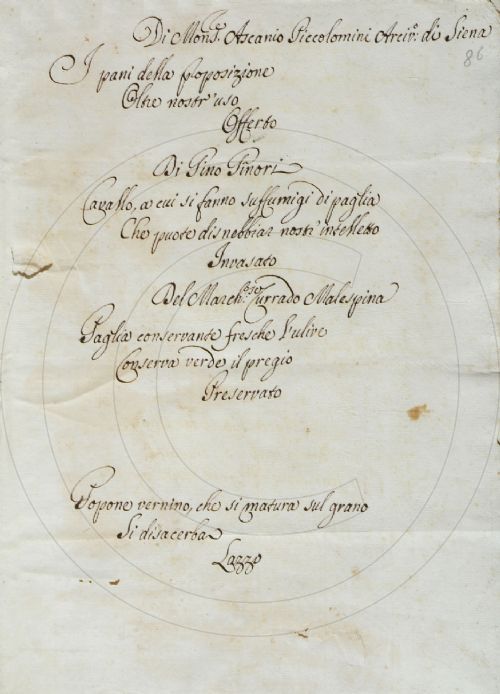 Di Mons.ʳ Ascanio Piccolomini Arciv.º di Siena
86
I pani della proposizione
Oltre nostr' uso
Offerto
Di Pino Pinori
Cavallo, a cui si fanno suffumigi di paglia
Che puote disnebbiar nostr' intelletto
Invasato
Del March.ᵉˢᵉ Currado Malespina
Paglia conservante fresche l'ulive
Conserva verde il pregio
Preservato
Popone vernino, che si matura sul grano
Si disacerba
Lazzo